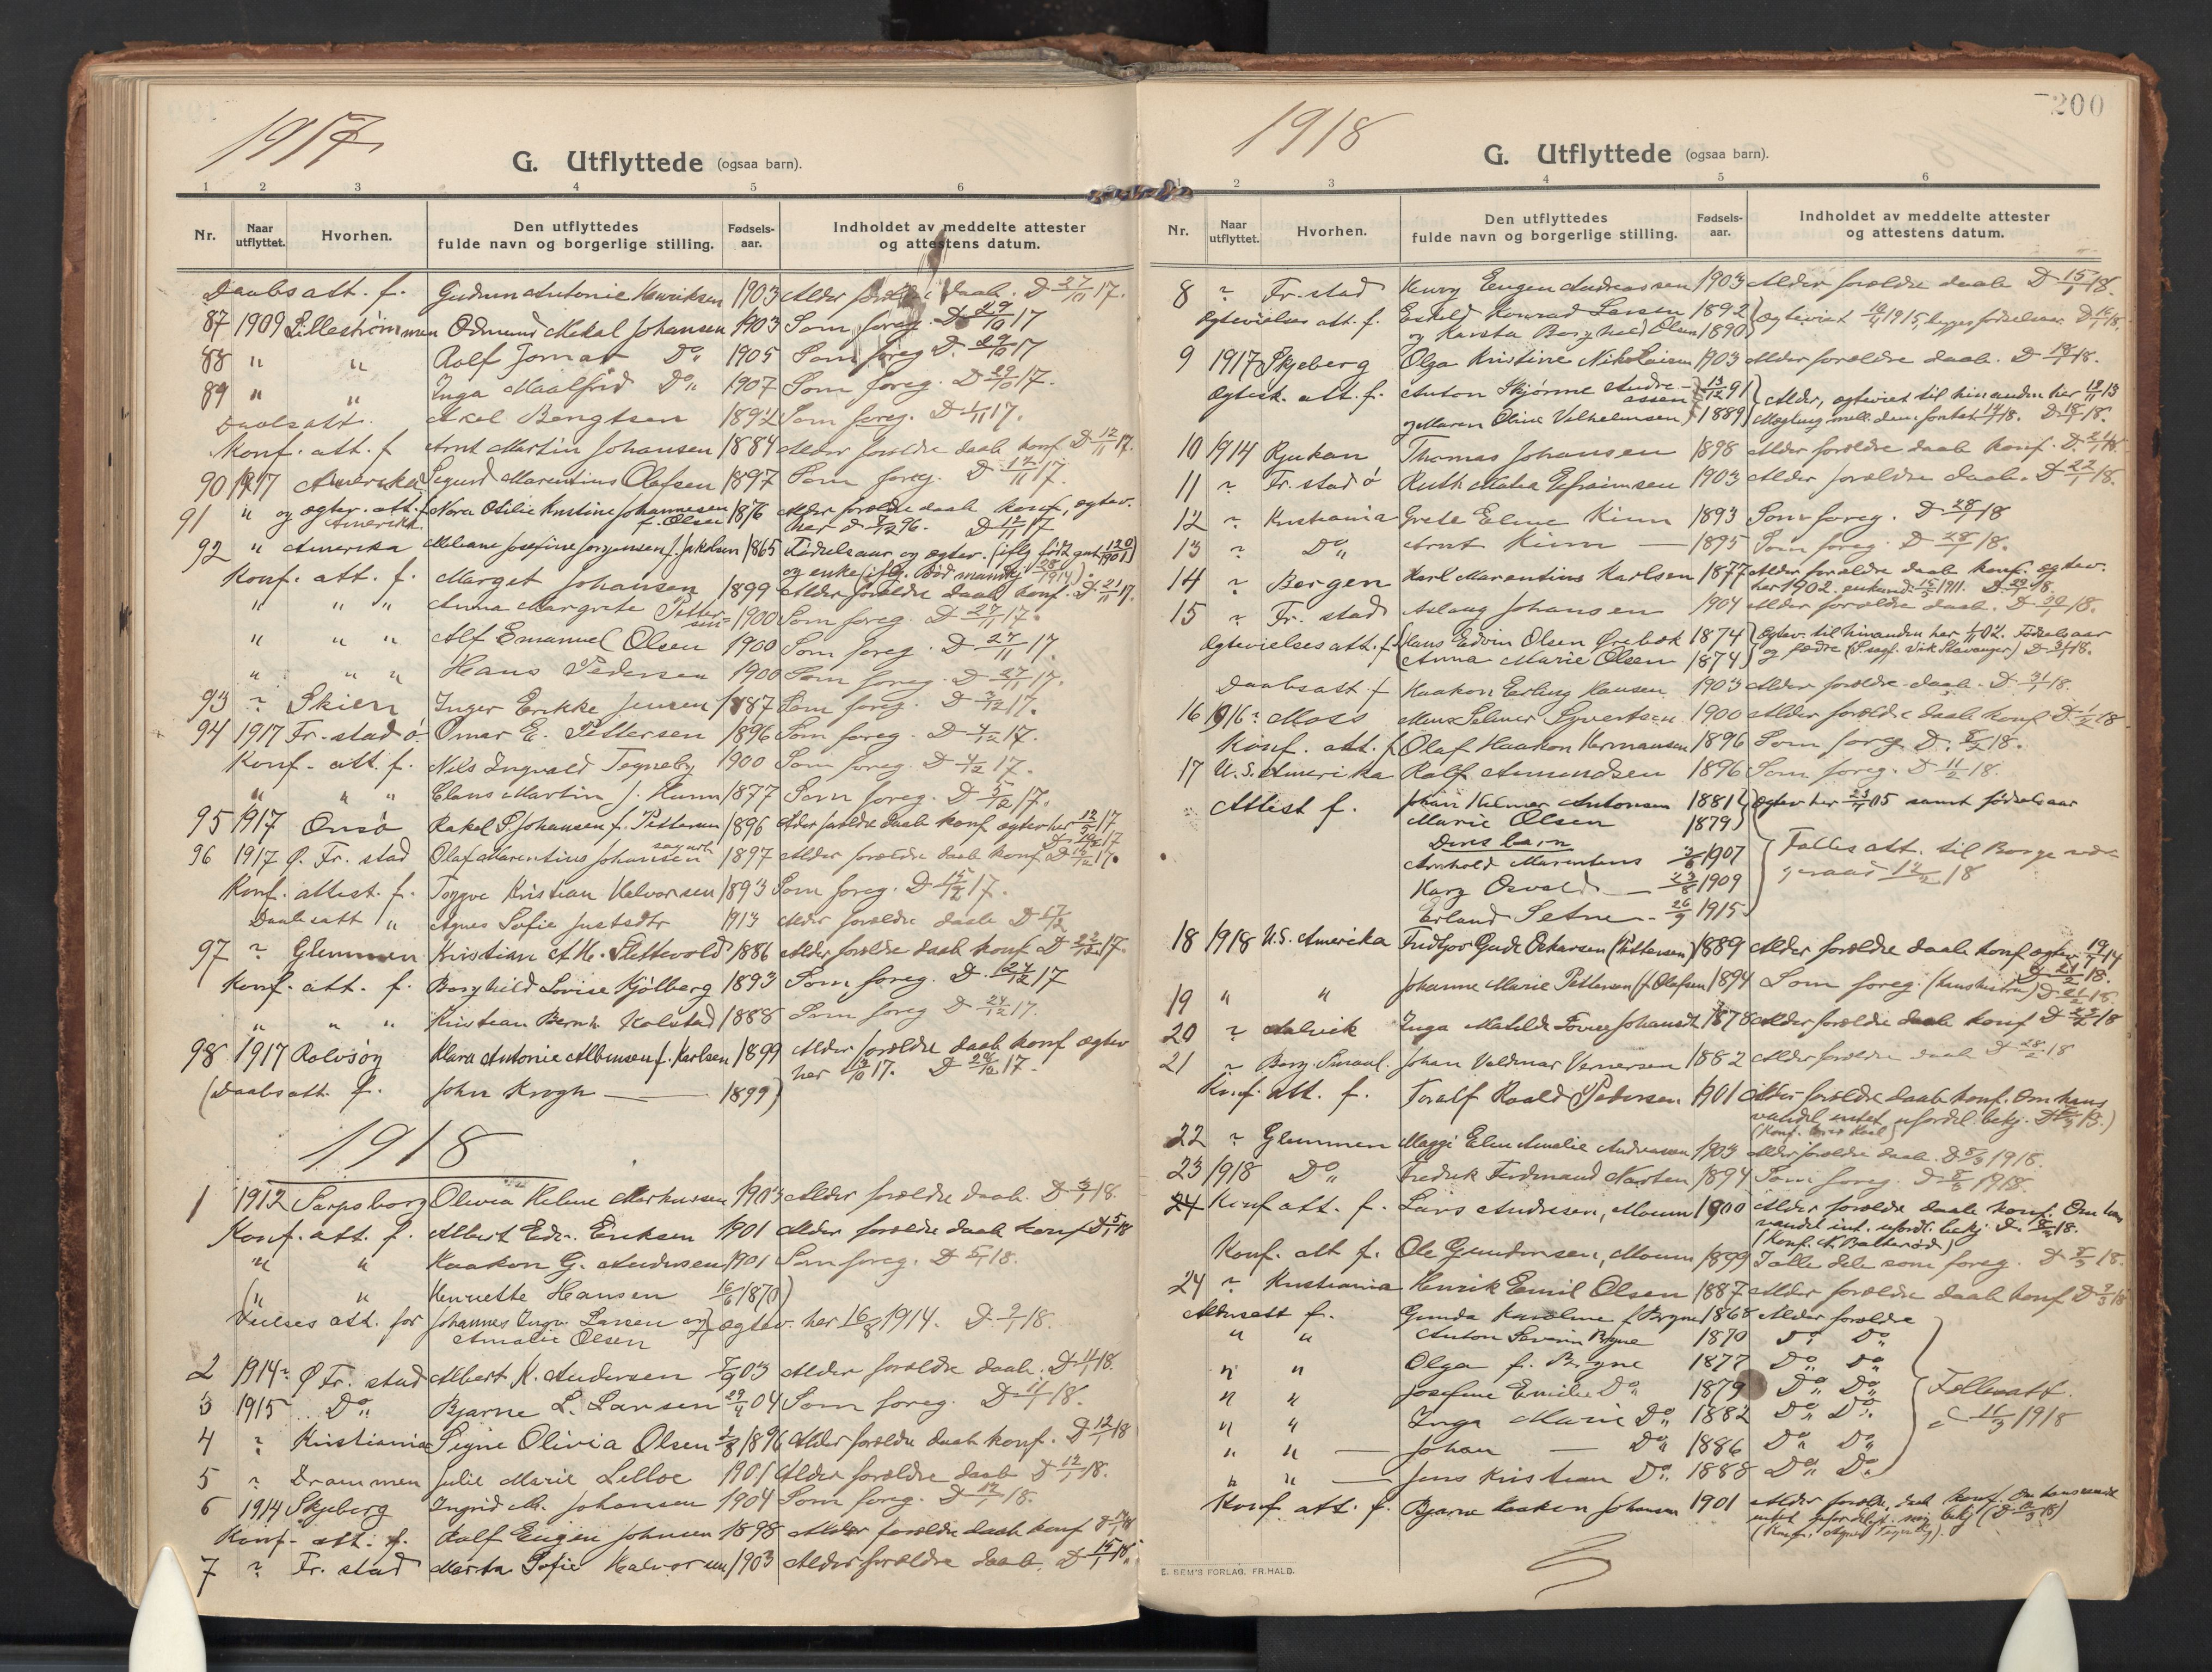 1917
G. Utflyttede (ogsaa barn).
1 2 3 4 5 6
Nr. Naar utflyttet. Hvorhen. Den utflyttedes fulde navn og borgerlige stilling. Fødsels-aar. Indholdet av meddelte attester og attestens datum.
Daabsatt. f. Gudrun Antonie Henriksen 1903 Alder forældre daab. D 27/10 17.
87 1909 Lillestrømmen Odmund Mekal Johansen 1903 Som foreg. D 29/10 17
88 " " Rolf Jomar Do 1905 Som foreg D. 29/10 17
89 " " Inga Maalfrid Do 1907 Som foreg. D 29/10 17.
Daabsatt. Axel Bengtsen Som foreg. D 17.
Konf. att. f Arnt Martin Johansen 1884 Alder forældre daab konf D 12/11 17.
90 1917 Amerika Sigurd Marentius Olafsen 1897 Som foreg. D 17.
91 " og ægtev. att. f. Nora Otilie Kristine Johannesen 1876 Alder forældre daab konf, ægtev.
Amerika f. Olsen her 96. D 17
92 " Amerika Josefine Jørgensen f. Jakobsen 1865 Fødselsaar og ægtev.
og enke
Konf. att. f. Margot Johansen 1899 Alder forældre daab konf. D 21/11 17.
" " " Anna Margrete Pettersen 1900 Som foreg. D 27/11 17.
" " " Alf Emanuel Olsen 1900 Som foreg. D 27/11 17.
" " " Hans Pedersen 1900 Som foreg. D 27/11 17.
93 ? Skien Inger Erikke Jensen 1887 Som foreg. D 3/12 17.
94 1917 Fr. stad ø. Omar E. Pettersen 1896 Som foreg. D 4/12 17.
Konf. att. f. Nils Ingvald Tegneby 1900 Som foreg. D 4/12 17.
" " " Claus Martin J. Hunn 1877 Som foreg. D 5/12 17.
95 1917 Onsø Rakel S. Johansen f. Pettersen 1896 Alder forældre daab konf ægtev her 12/5 17
96 1917 Ø. Fr. stad Olaf Marentius Johansen 1897 Alder forældre daab konf D 17.
Konf. attest. f. Trygve Kristian Halvorsen 1893 Som foreg. D 15/12 17.
Daabsatt " Agnes Sofie Justsdtr 1913 Alder forældre daab D 17/12
97 ? Glemmen Kristian A. M. Slettevold 1886 Alder forældre daab konf D 22/12 17.
Konf. att. f. Borghild Lovise Kjølberg 1893 Som foreg. D. 24/12 17
" " " Kristian Bernh. Kolstad 1888 Som foreg D 24/12 17.
98 1917 Rolvsøy Klara Antonie Albinsen f. Karlsen 1899 Alder forældre daab konf ægtev
her 17. D 28/12 17.
(Daabsatt. f. John Krogh 1899)
1918
1 1912 Sarpsborg Olivia Helene Markussen 1903 Alder forældre daab. D 3/1 18.
Konf. att. f. Albert Edv. Eriksen 1901 Alder forældre daab konf D 5/1 18
" " Haakon G. Andersen 1901 Som foreg. D 5/1 18.
(" " Henriette Hansen 16/6 1870)
Vielses att. for Johannes Ingv. Larsen og ægtev. her 16/8 1914. D. 9/1 18.
Amalie Olsen
2 1914? Ø Fr. stad Albert K. Andersen 03 Alder forældre daab. D 11/1 18.
3 1915 Do Bjarne L. Larsen 29/4 04 Som foreg. D 11/1 18.
4 ? Kristiania Signe Olivia Olsen 1896 Alder forældre daab konf. D 12/1 18
5 ? Drammen Julie Marie Lelloe 1901 Alder forældre daab D 12/1 18.
6 1914 Skjeberg Ingrid M. Johansen 1904 Som foreg. D 12/1 18.
Konf. att. f. Rolf Eugen Johnsen 1898 Alder forældre daab konf
7 ? Fr. stad Marta Sofie Halvorsen 1903 Alder forældre daab. D 15/1 18.
1918
200
G. Utflyttede (ogsaa barn).
1 2 3 4 5 6
Nr. Naar utflyttet. Hvorhen. Den utflyttedes fulde navn og borgerlige stilling. Fødsels-aar. Indholdet av meddelte attester og attestens datum.
8 ? Fr. stad Henry Eugen Andreassen 1903 Alder forældre daab D 15/1 18.
Ægtevielses att. f. Konrad Larsen 1892 ægteviet 1915,
og Karsta Borghild Olsen 1890
9 1917 Skjeberg Olga Kristine Nikolaisen 1903 Alder forældre daab. D 18/1 18.
Ægtesk. att. f. Anton Skjønne Andreassen 13/12 91 Alder, ægteviet til hinanden her
og Maren Oline Vilhelmsen 1889 Mægling mell. dem 18. D 18/1 18.
10 1914 Rjukan Thomas Johansen 1898 Alder forældre daab konf. D. 18.
11 ? Fr. stad ø Ruth Efraimsen 1903 Alder forældre daab. D 22/1 18.
12 ? Kristiania Grete Kinn 1893 Som foreg. D 28/1 18
13 ? Do Arnt Kinn 1895 Som foreg. D 28/1 18.
14 ? Bergen Karl Marentius Karlsen 1877 Alder forældre daab konf. ægtev.
her 1902. enkemd. 1911. D. 29/1 18.
15 ? Fr. stad Aslaug Johansen 1904 Alder forældre daab. D. 18.
Ægtevielses att. f. Hans Edvin Olsen Ørebæk 1874 Ægtev. til hinanden her 02. Fødselsaar
Anna Marie Olsen 1874
Daabsatt f Haakon Erling Hansen 1903 Alder forældre daab. D. 31/1 18.
16 1916? Moss Selmer Syvertsen 1900 Alder forældre daab konf D 1/2 18
Konf. att. f. Olaf Haakon Hermansen 1896 Som foreg. D. 8/2 18.
17 U. S. Amerika Rolf Amundsen 1896 Som foreg. D 11/2 18.
Attest f. Johan Hilmer Antonsen 1881 Ægtev her 05 samt fødselsaar
Marie Olsen 1879
Deres barn
Arnhold Marentius 1907 Fælles att. til Borge
Harz Osvald 23/8 1909
Erland Setne 26/9 1915
18 1918 U.S. Amerika Fridtjov Gude Oskarsen (Pettersen) 1889 Alder forældre daab konf ægtev. 14
19 " " Johanne Marie Pettersen (f. Olafsen 1894 Som foreg. (hans hustru) D 21/2 18.
20 ? Aalvik Inga Matilde Johansdt 1878 Alder forældre daab konf D 18
21 ? Borg Smaal. Johan Valdemar Vernersen 1882 Alder forældre daab D 28/2 18
Konf. att. f. Toralf Roald Pedersen 1901 Alder forældre daab konf. Om hans
vandel intet ufordel. bekj.
22 ? Glemmen Maggi Elen Amalie Andreassen 1903 Alder forældre daab. D. 1918.
23 1918 Do Fredrik Ferdinand Karsten 1894 Som foreg. D 8/3 1918.
24 Konf att. f. Lars Andresen, Moum 1900 Alder forældre daab konf. Om hans
vandel int. ufordl. bekj. D. 18.
(Konf. N. Balkerød)
Konf. att f. Ole Gundersen, Moum 1899 I alle dele som foreg. D 18.
24 ? Kristiania Henrik Emil Olsen 1887 Alder forældre daab konf D 9/3 18
Aldersatt f. Gunda Karoline f. Bryne 1868 Alder forældre
" " Anton Severin Bryne 1870 Do Do
" " Olga f. Bryne 1877 Do Do
" " Josefine Emilie Do 1879 Do Do Fellesatt.
" " Inga Marie Do 1882 Do Do 11/3 1918
" " Johan Do 1886 Do Do
" " Jens Kristian Do 1888 Do Do
Konf. att. f. Bjarne Haakon Johansen 1901 Alder foreldre daab konf. Om hans vandel
intet
E. SEM'S FORLAG, FR.HALD.